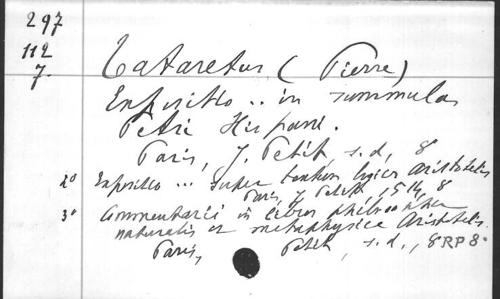 297
112
7.
Tataretus (Pierre)
Expositio .. in summulas
Petri Hispani.
Paris, J. Petit, s.d., 8°
2° Expositio ... super textum logices Aristotelis
Paris, J. Petit, 1514, 8
3° Commentarii in libros philosophiae
naturalis et metaphysice Aristotelis.
Paris, Petit, s.d., 8RP8°